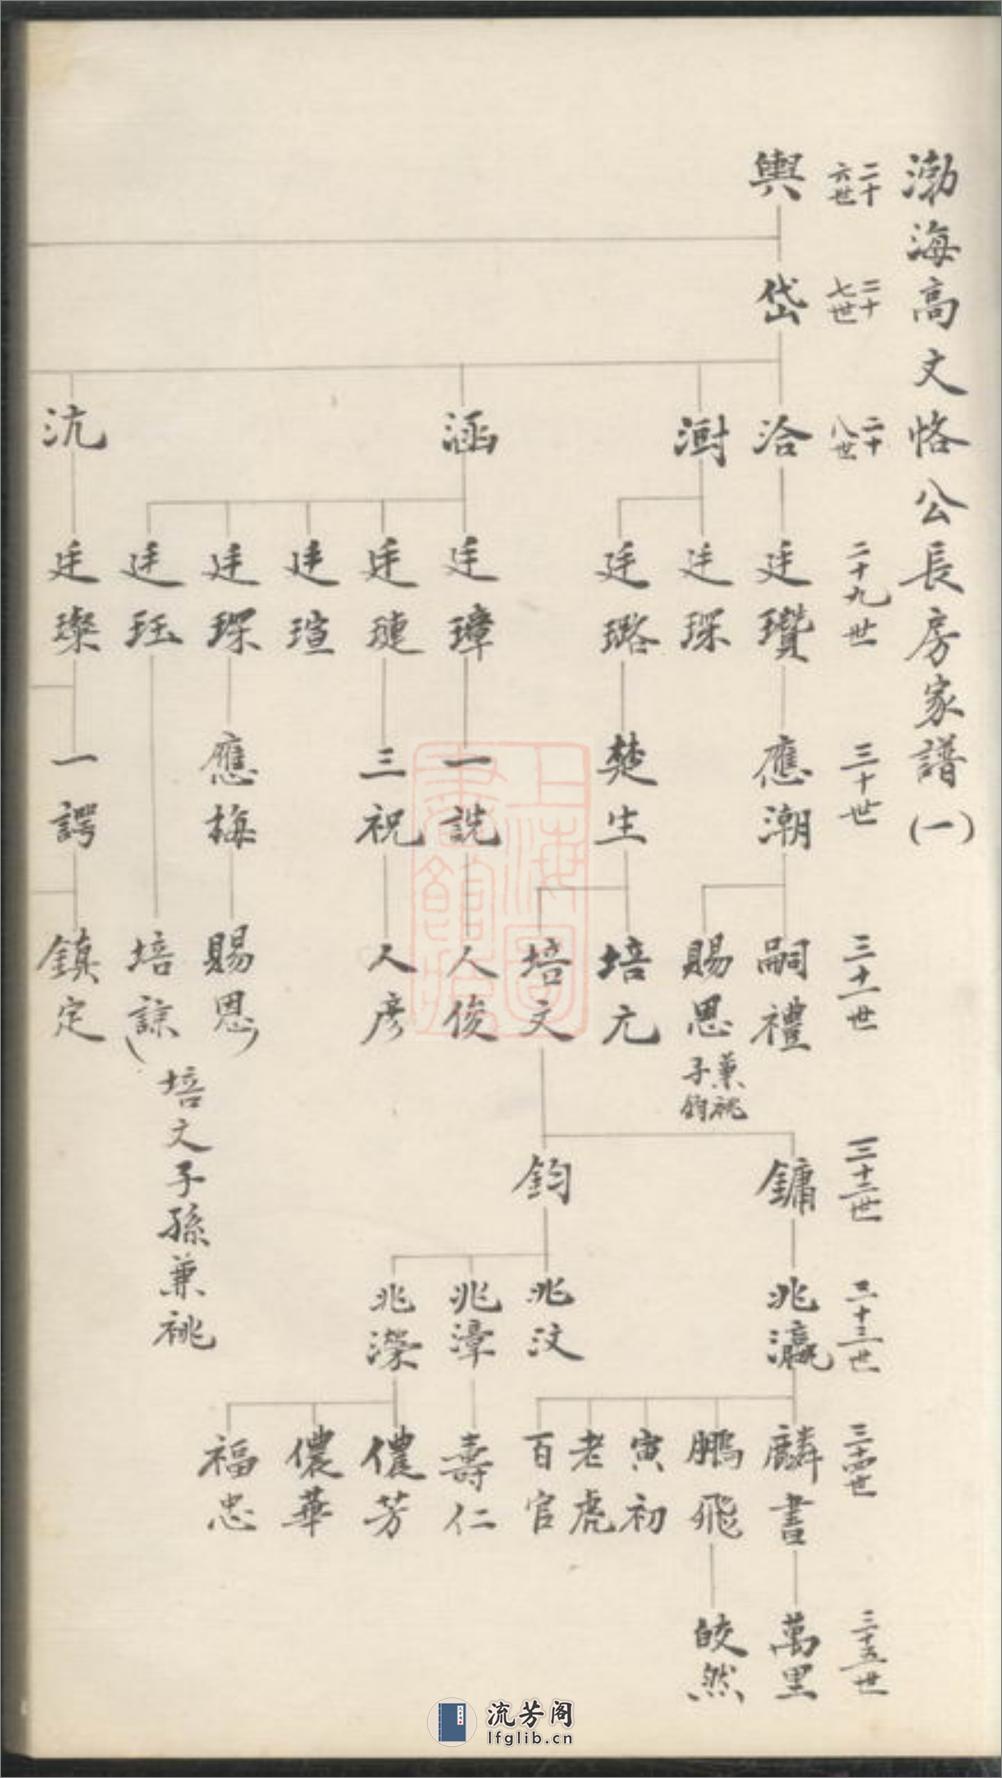 渤海高文恪公長房家譜(一)
二十六世
二十七世
二十八世
二十九世
三十世
三十一世
三十二世
三十三世
三十四世
三十五世
輿
岱
洽
澍
涵
沆
廷瓚
廷琛
廷璐
廷璋
廷璉
廷瑄
廷琛
廷珏
廷璨
應潮
楚生
一詵
三祝
應梅
一諤
嗣禮
賜恩
兼祧子鈞
培元
培文
人俊
人彥
賜恩
培諒
(培文子孫兼祧)
鎮定
鏞
鈞
兆瀛
兆汶
兆漳
兆濚
麟書
鵬飛
寅初
老虎
百官
壽仁
儂芳
儂華
福忠
萬里
皎然
上海圖書館藏
流芳阁
lfglib.cn